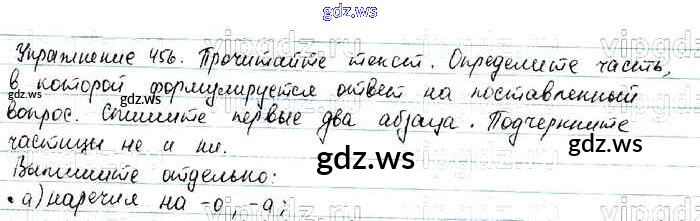 gdz.ws
Упражнение 456. Прочитайте текст. Определите часть,
в которой формулируется ответ на поставленный
gdz.ws
вопрос. Спишите первые два абзаца. Подчеркните
частицы не и ни.
gdz.ws
gdz.ws
Выпишите отдельно:
а) наречия на -о, -а;